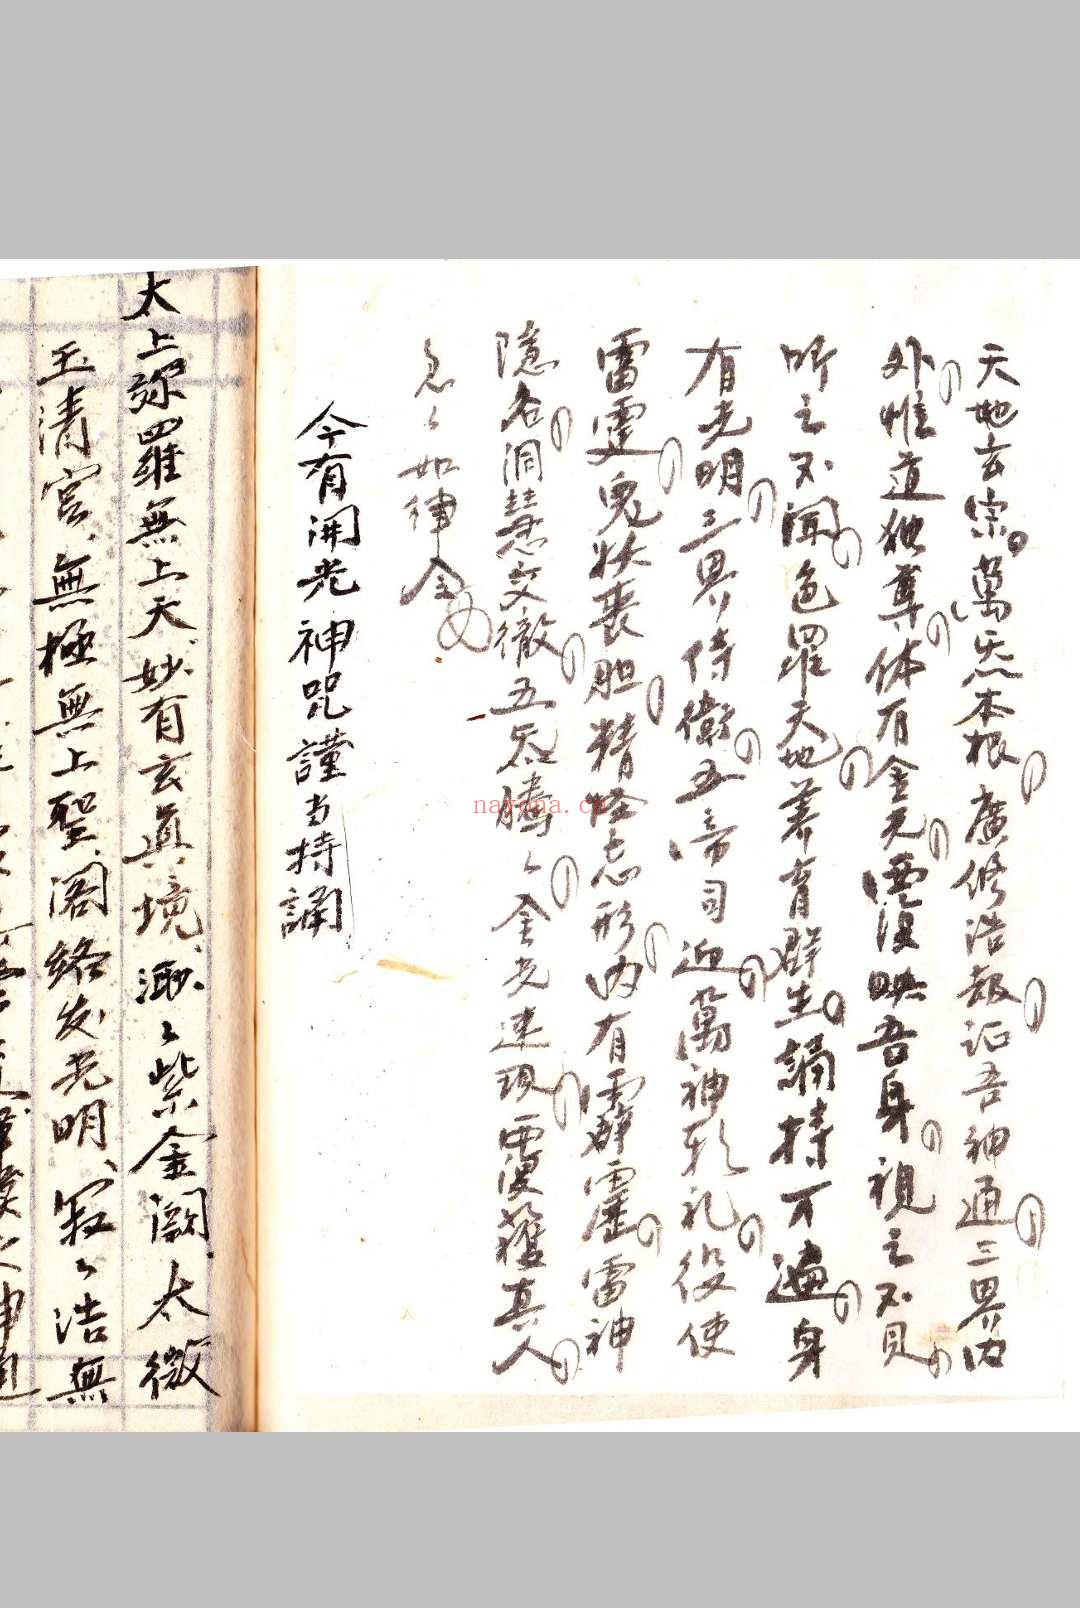 天地玄宗萬炁本根廣修浩叝証吾神通三界内
外惟道独尊体有金光覆映吾身視之不見
听之不闻包羅天地养育群生誦持万遍身
有光明三界侍衛五帝司迎萬神朝礼役使
雷霆鬼妖喪胆精怪忘形内有霹靂雷神
隱名洞慧交徹五炁腾〻金光速現覆護真人
急〻如律令
今有開光神咒謹当持誦
太上弥羅無上天妙有玄真境渺〻紫金闕太微
玉清宮無極無上聖阁络发光明寂〻浩無
nayona.cn